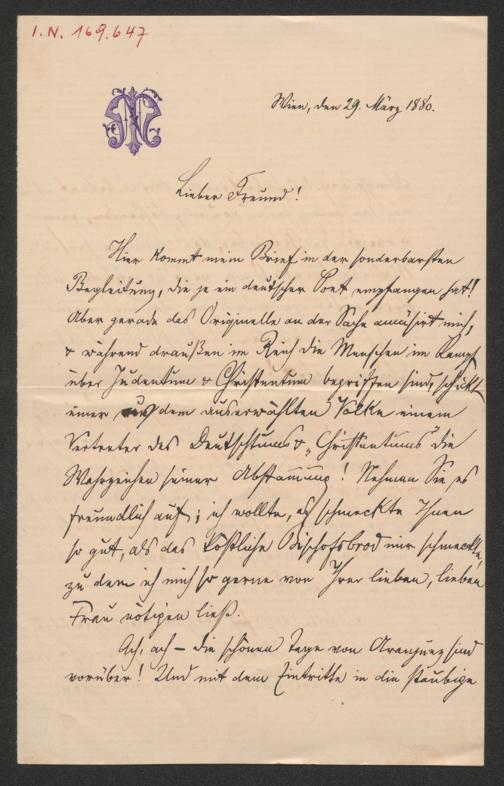 I.N. 169.647
Wien, den 29. März 1880.
Lieber Freund!
Hier kommt mein Brief in der sonderbarsten
Begleitung, die je ein deutscher Poet empfangen hat!
Aber gerade das Originelle an der Sache amüsirt mich,
& während draußen im Reich die Menschen im Kampf
über Judentum & Christentum begriffen sind, schickt
einer aus dem auserwählten Volke einem
Vertreter des Deutschtums & „Christentums" die
Wahrzeichen seiner Abstammung! Nehmen Sie es
freundlich auf; ich wollte, es schmeckte Ihnen
so gut, als das köstliche Bischofsbrod mir schmeckte,
zu dem ich mich so gerne von Ihrer lieben, lieben
Frau nötigen ließ.
Ach, ach – die schönen Tage von Aranjuez sind
vorüber! Und mit dem Eintritte in die staubige